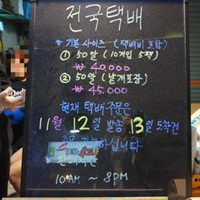 전국택배
※ 기본 사이즈 (택배비 포함)
① 50알 (10개입 5팩)
₩ 40,000
② 50알 (낱개포장)
₩ 45,000
현재 택배주문은
11월 12일 발송 13일 도착건
하십니다
10AM ~ 8PM